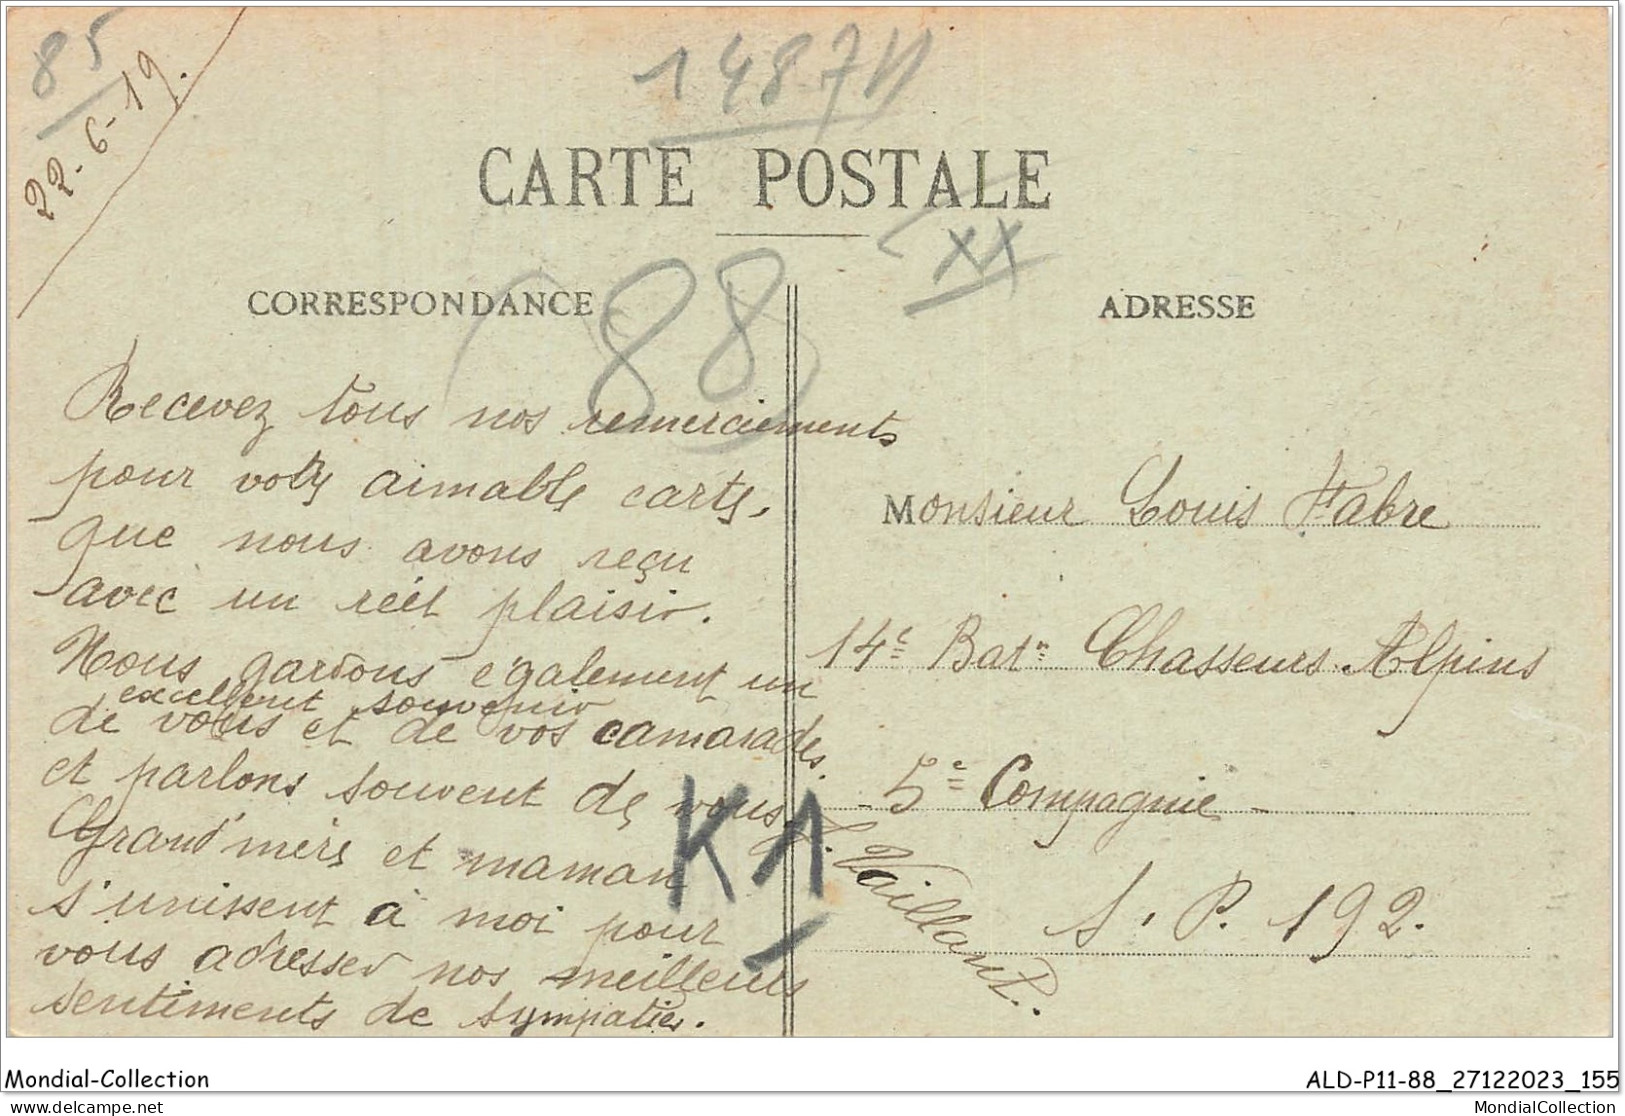 85
22-6-19.
1487
CARTE POSTALE
XX
88
CORRESPONDANCE
ADRESSE
Recevez tous nos remerciements
pour votre aimable carte,
que nous avons reçu
avec un réel plaisir.
Nous gardons également un
excellent souvenir
de vous et de vos camarades,
et parlons souvent de vous.
Grand'mère et maman
s'unissent à moi pour
vous adresser nos meilleurs
sentiments de sympathie.
Vaillant.
K1
Monsieur Louis Fabre
14e Batn Chasseurs Alpins
5e Compagnie
S. P. 192.
Mondial-Collection
ALD-P11-88_27122023_155
delcampe.net
MondialCollection